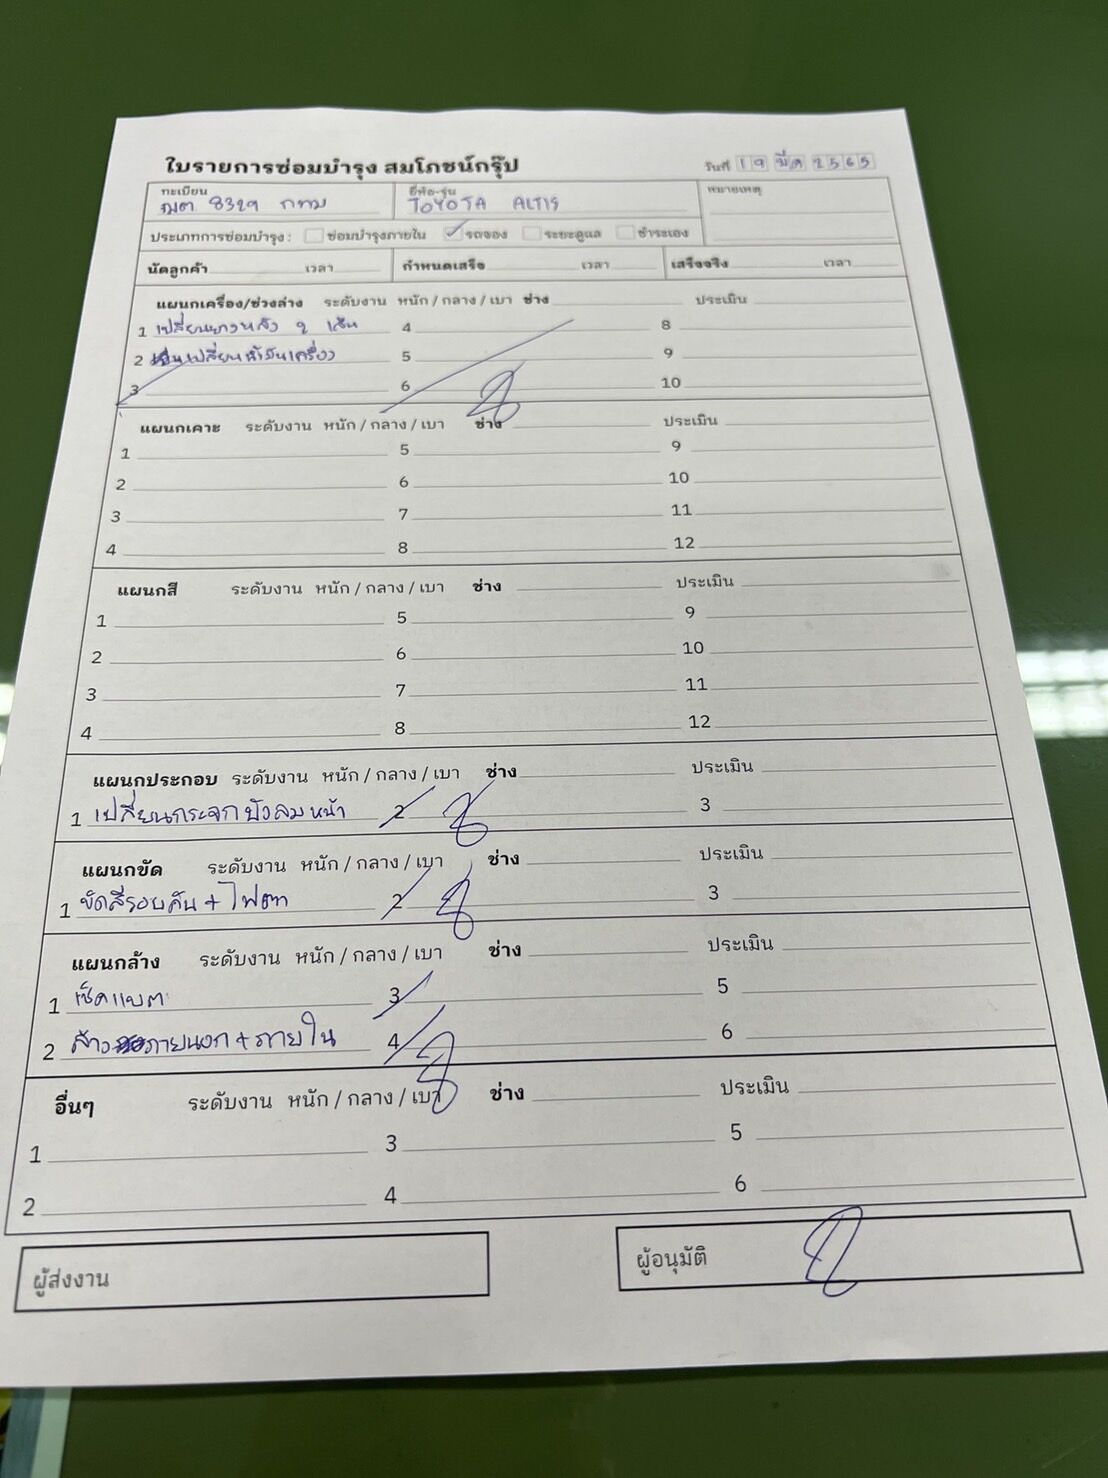 ใบรายการซ่อมบำรุง สมโภชน์กรุ๊ป
วันที่ 19 มีค 2565
ทะเบียน ฎต 8329 กทม ยี่ห้อ-รุ่น TOYOTA ALTIS หมายเหตุ
ประเภทการซ่อมบำรุง : ซ่อมบำรุงภายใน รถจอง ระยะดูแล ชำระเอง
นัดลูกค้า เวลา กำหนดเสร็จ เวลา เสร็จจริง เวลา
แผนกเครื่อง/ช่วงล่าง ระดับงาน หนัก / กลาง / เบา ช่าง ประเมิน
1 เปลี่ยนยางหลัง 2 เส้น 4 8
2 เปลี่ยนน้ำมันเครื่อง 5 9
3 6 10
แผนกเคาะ ระดับงาน หนัก / กลาง / เบา ช่าง ประเมิน
1 5 9
2 6 10
3 7 11
4 8 12
แผนกสี ระดับงาน หนัก / กลาง / เบา ช่าง ประเมิน
1 5 9
2 6 10
3 7 11
4 8 12
แผนกประกอบ ระดับงาน หนัก / กลาง / เบา ช่าง ประเมิน
1 เปลี่ยนกระจกบังลมหน้า 2 3
แผนกขัด ระดับงาน หนัก / กลาง / เบา ช่าง ประเมิน
1 ขัดสีรอบคัน + ไฟตา 2 3
แผนกล้าง ระดับงาน หนัก / กลาง / เบา ช่าง ประเมิน
1 เช็คแบต 3 5
2 ล้าง ภายนอก + ภายใน 4 6
อื่นๆ ระดับงาน หนัก / กลาง / เบา ช่าง ประเมิน
1 3 5
2 4 6
ผู้ส่งงาน ผู้อนุมัติ